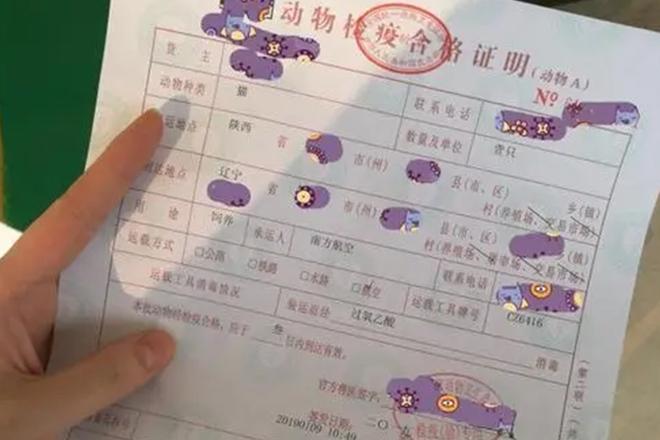 动物检疫合格证明(动物A)
№
货 主 联系电话
动物种类 猫 数量及单位 壹只
运地点 陕西 省 市(州) 县(市、区) 乡(镇)
村(养殖场、交易市场)
到达地点 辽宁 省 市(州) 县(市、区) (镇)
村(养殖场、屠宰场、交易市场)
用 途 饲养 承运人 南方航空 联系电话
运载方式 □公路 □铁路 □水路 航空 运载工具牌号 CZ6416
运载工具消毒情况 装运前经 过氧乙酸 消毒
本批动物经检疫合格,应于 叁 日内到达有效。
官方兽医签字:
签发日期: 二〇
20190109 10:49
(第二联)